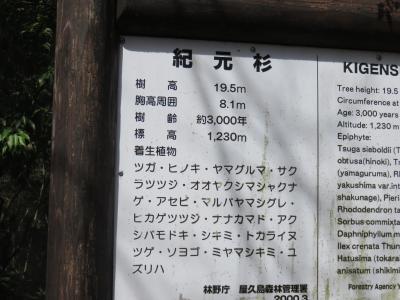 紀元杉
樹高 19.5m
胸高周囲 8.1m
樹齢 約3,000年
標高 1,230m
着生植物
ツガ・ヒノキ・ヤマグルマ・サク
ラツツジ・オオヤクシマシャクナ
ゲ・アセビ・マルバヤマシグレ・
ヒカゲツツジ・ナナカマド・アク
シバモドキ・シキミ・トカライヌ
ツゲ・ソヨゴ・ミヤマシキミ・ユ
ズリハ
林野庁 屋久島森林管理署
2000.3
KIGENS
Tree height: 19.5
Circumference at
Age: 3,000 years
Altitude: 1,230 m
Epiphyte:
Tsuga sieboldii (T
obtusa(hinoki), Tr
(yamaguruma), R
yakushima var.int
shakunage), Pieri
Rhododendron ta
Sorbus commixta
Daphniphyllum m
Ilex crenata Thun
Hatusima (tokara
anisatum (shikimi
Forestry Agency Y